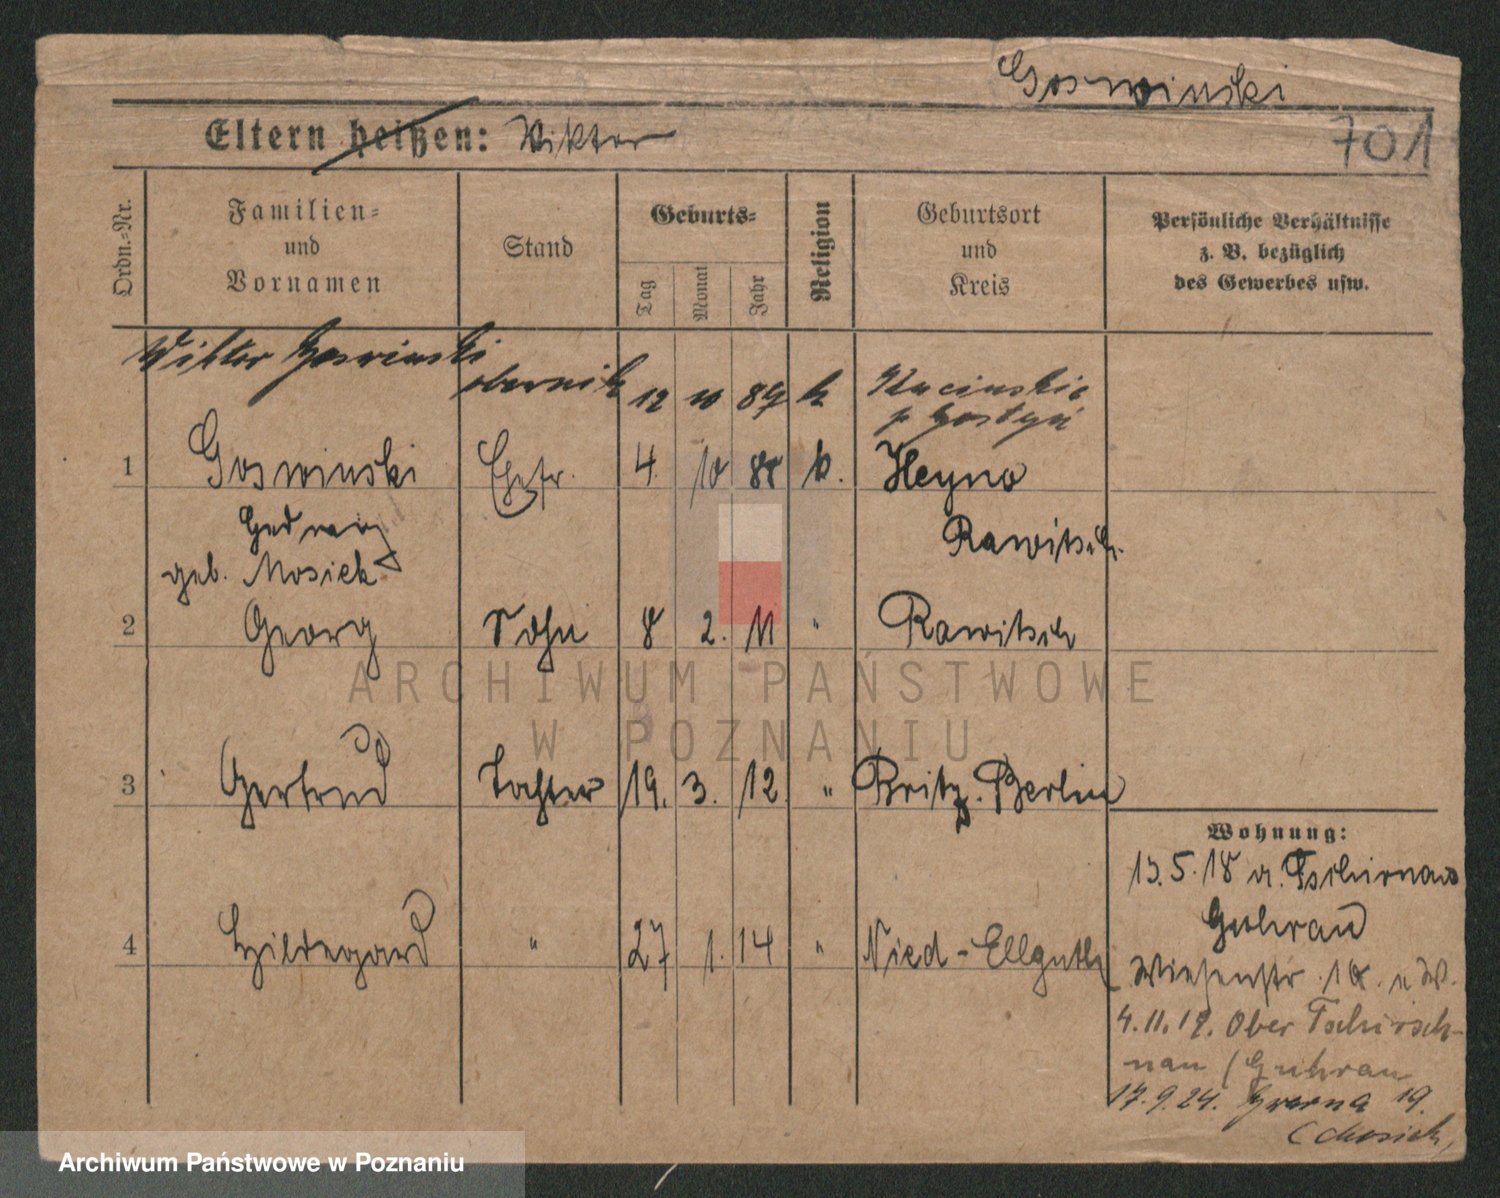 Goswinski
701
Eltern heißen: Viktor
Ordn.-Nr.
Familien- und Vornamen
Stand
Geburts-
Tag
Monat
Jahr
Religion
Geburtsort und Kreis
Persönliche Verhältnisse z. B. bezüglich des Gewerbes usw.
Wiktor Goswinski 12 10 89 k
p Gostyń
1 Goswinski Ehefr. 4. 10 88 k. Heyno
Hedwig Rawitsch
geb. Mosiek
2 Georg Sohn 8 2. 11 " Rawitsch
ARCHIWUM PAŃSTWOWE
W POZNANIU
3 Gertrud Tochter 19. 3. 12 " Britz. Berlin
4 Hildegard " 27 1. 14 " Nied-Ellguth
Wohnung:
13.5.18 n. Tschirnau
Guhrau
Wiesenstr.
4.11.19. Ober Tschirsch-
nau / Guhrau
17.9.24. 19.
(Mosiek,
Archiwum Państwowe w Poznaniu